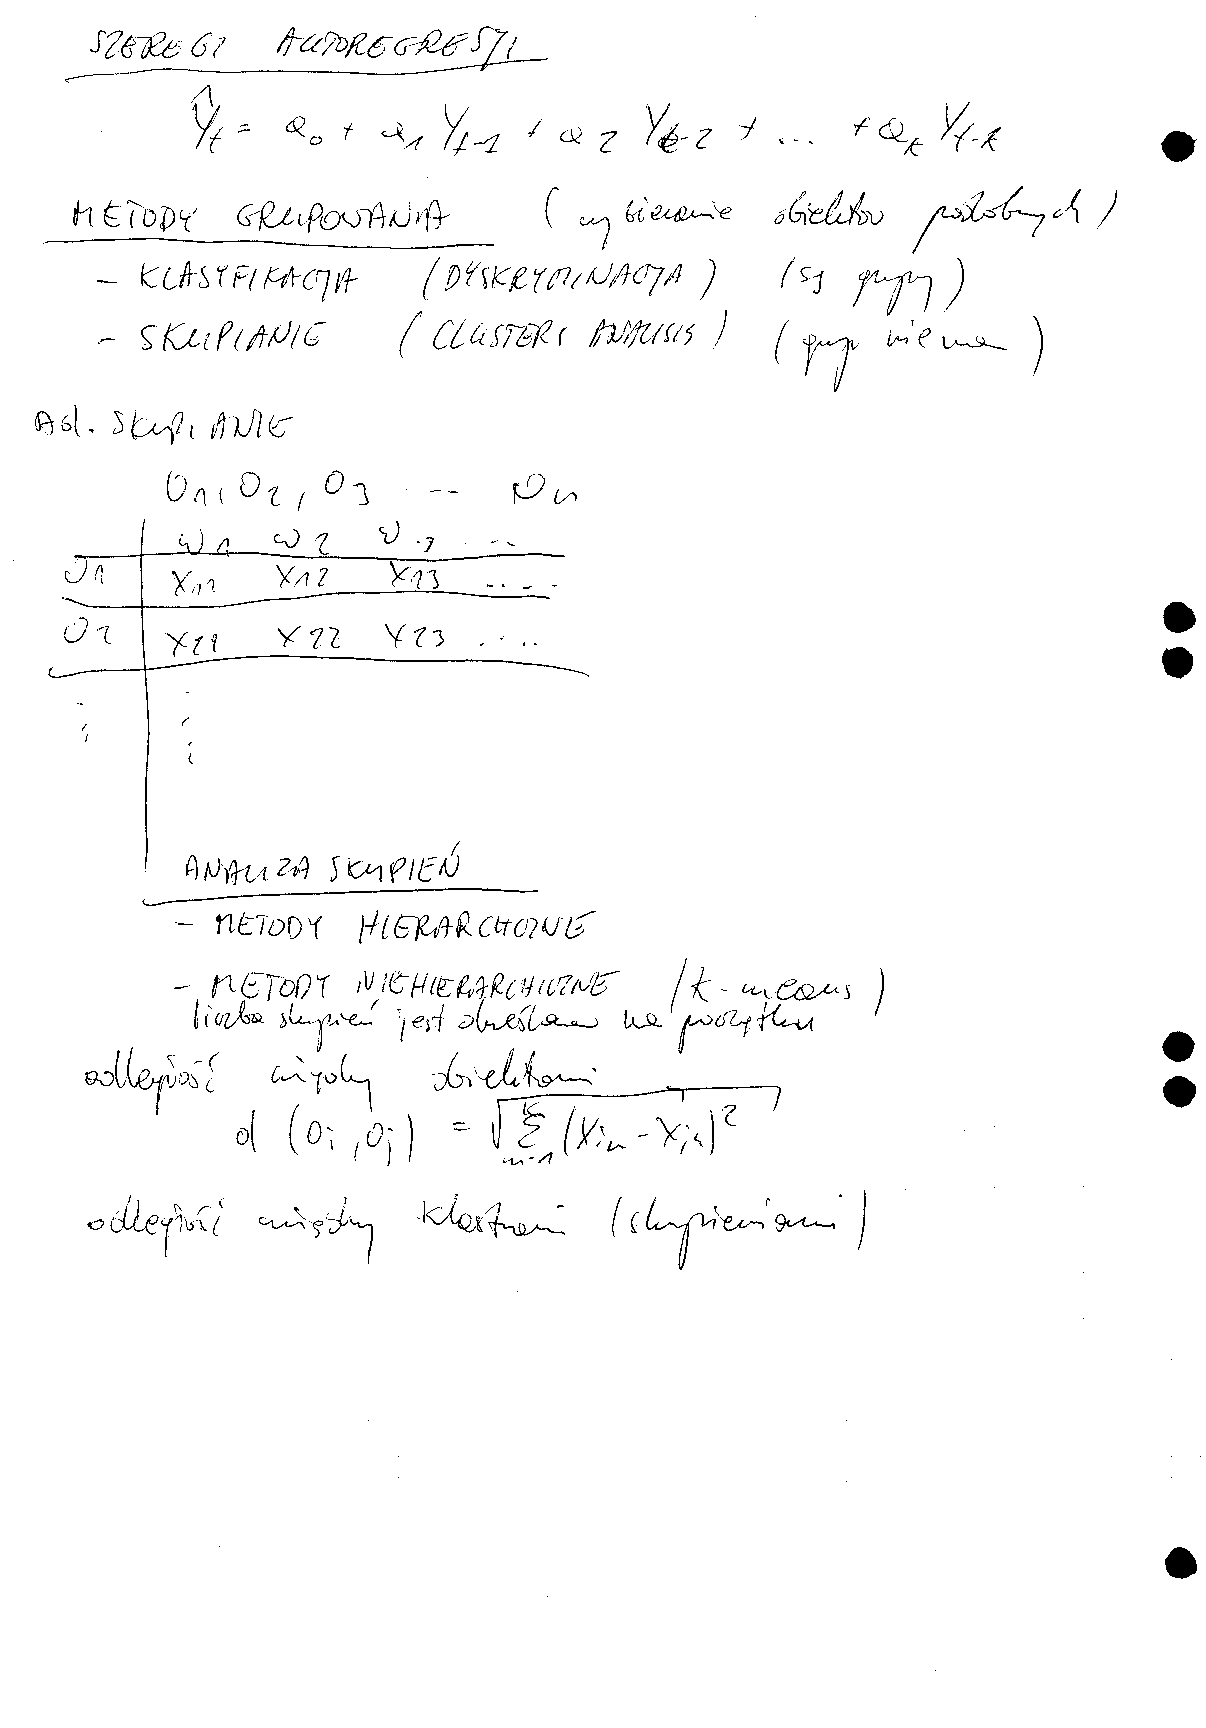 SZEREGI AUTOREGRESJI
Ŷt = a0 + a1 Yt-1 + a2 Yt-2 + ... + ak Yt-k
METODY GRUPOWANIA (wybieranie obiektów podobnych)
- KLASYFIKACJA (DYSKRYMINACJA) (są grupy)
- SKUPIANIE (CLUSTERS ANALISIS) (grup nie ma)
Ad. SKUPIANIE
O1, O2, O3 ... On
w1 w2 w3 ...
O1 X11 X12 X13 ....
O2 X21 X22 X23 ....
ANALIZA SKUPIEŃ
- METODY HIERARCHICZNE
- METODY NIEHIERARCHICZNE (k-means)
liczba skupień jest określana na początku
odległość między obiektami
d (Oi, Oj) = √Σ (Xin - Xjn)²
odległość między klastrami (skupieniami)